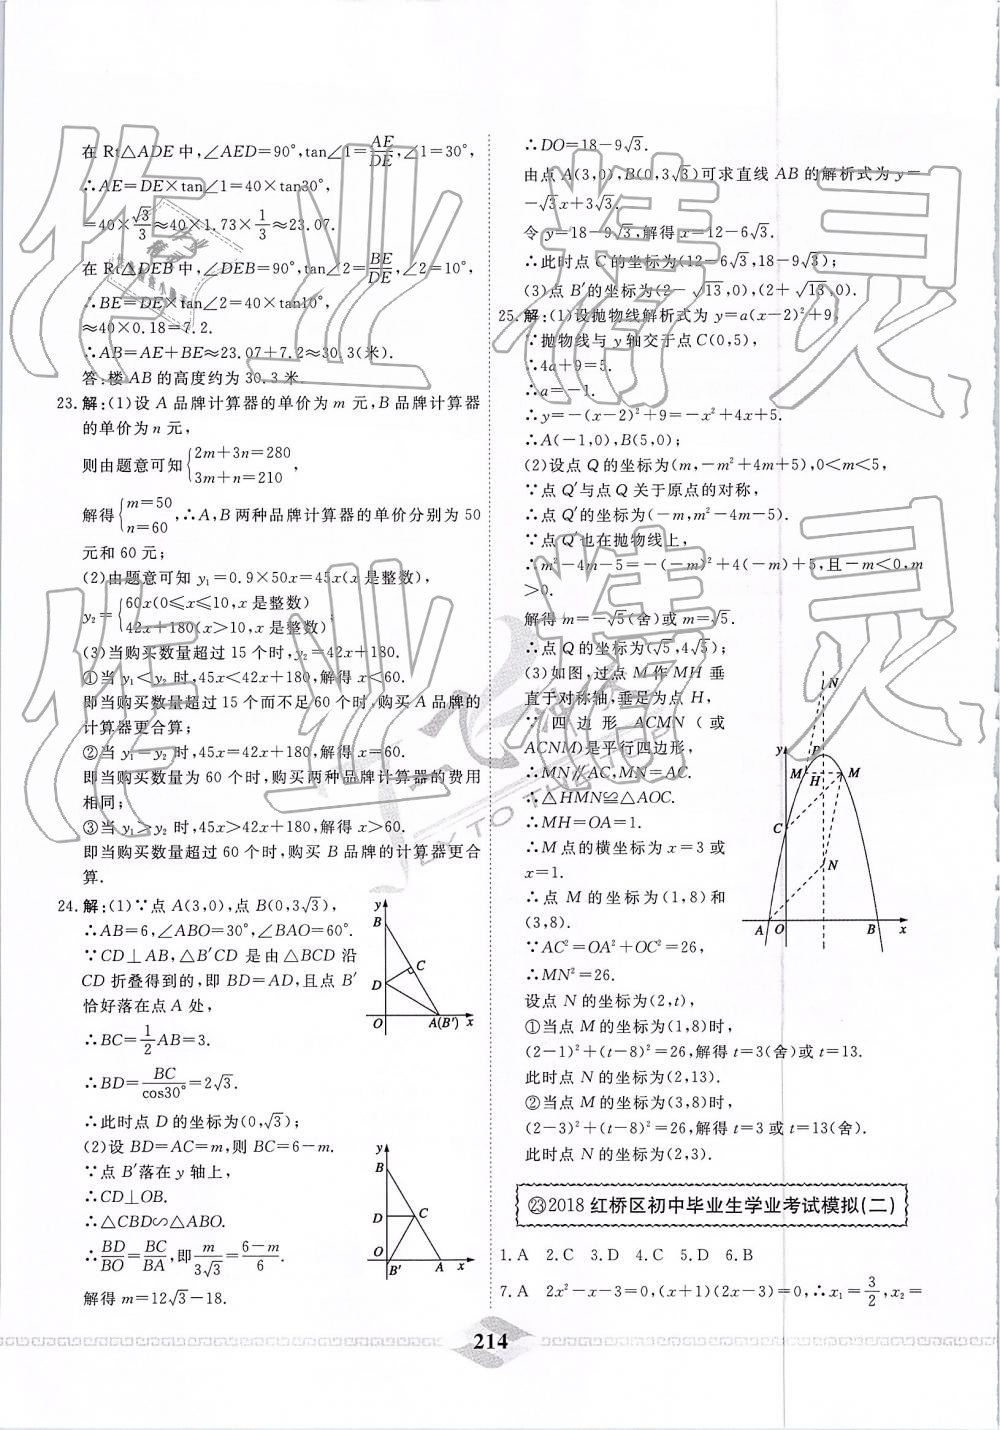 在 Rt△ADE 中,∠AED=90°,tan∠1=AE/DE,∠1=30°,
∴AE=DE×tan∠1=40×tan30°,
=40×√3/3≈40×1.73×1/3≈23.07.
在 Rt△DEB 中,∠DEB=90°,tan∠2=BE/DE,∠2=10°,
∴BE=DE×tan∠2=40×tan10°,
≈40×0.18=7.2.
∴AB=AE+BE≈23.07+7.2≈30.3(米).
答:楼 AB 的高度约为 30.3 米.
23.解:(1)设 A 品牌计算器的单价为 m 元,B 品牌计算器
的单价为 n 元,
则由题意可知{2m+3n=280
3m+n=210
解得{m=50
n=60,∴A,B 两种品牌计算器的单价分别为 50
元和 60 元;
(2)由题意可知 y₁=0.9×50x=45x(x 是整数),
y₂={60x(0≤x≤10,x 是整数)
42x+180(x>10,x 是整数);
(3)当购买数量超过 15 个时,y₂=42x+180.
①当 y₁<y₂ 时,45x<42x+180,解得 x<60.
即当购买数量超过 15 个而不足 60 个时,购买 A 品牌的
计算器更合算;
②当 y₁=y₂ 时,45x=42x+180,解得 x=60.
即当购买数量为 60 个时,购买两种品牌计算器的费用
相同;
③当 y₁>y₂ 时,45x>42x+180,解得 x>60.
即当购买数量超过 60 个时,购买 B 品牌的计算器更合
算.
24.解:(1)∵点 A(3,0),点 B(0,3√3),
∴AB=6,∠ABO=30°,∠BAO=60°.
∵CD⊥AB,△B′CD 是由△BCD 沿
CD 折叠得到的,即 BD=AD,且点 B′
恰好落在点 A 处,
∴BC=1/2AB=3.
∴BD=BC/cos30°=2√3.
∴此时点 D 的坐标为(0,√3);
y
B
C
D
O A(B′) x
(2)设 BD=AC=m,则 BC=6-m.
∵点 B′落在 y 轴上,
∴CD⊥OB.
∴△CBD∽△ABO.
∴BD/BO=BC/BA,即m/3√3=6-m/6
解得 m=12√3-18.
y
B
D C
O
B′ A x
∴DO=18-9√3.
由点 A(3,0),B(0,3√3)可求直线 AB 的解析式为 y=
-√3x+3√3.
令 y=18-9√3,解得 x=12-6√3.
∴此时点 C 的坐标为(12-6√3,18-9√3);
(3)点 B′的坐标为(2-√13,0),(2+√13,0).
25.解:(1)设抛物线解析式为 y=a(x-2)²+9,
∵抛物线与 y 轴交于点 C(0,5),
∴4a+9=5.
∴a=-1.
∴y=-(x-2)²+9=-x²+4x+5.
∴A(-1,0),B(5,0);
(2)设点 Q 的坐标为(m,-m²+4m+5),0<m<5,
∵点 Q′与点 Q 关于原点的对称,
∴点 Q′的坐标为(-m,m²-4m-5).
∵点 Q′也在抛物线上,
∴m²-4m-5=-(-m)²+4(-m)+5,且-m<0,m
>0.
解得 m=-√5(舍)或 m=√5.
∴点 Q 的坐标为(√5,4√5);
(3)如图,过点 M 作 MH 垂
直于对称轴,垂足为点 H,
∵四边形 ACMN(或
ACNM)是平行四边形,
∴MN∥AC,MN=AC.
∴△HMN≌△AOC.
∴MH=OA=1.
∴M 点的横坐标为 x=3 或
x=1.
∴点 M 的坐标为(1,8)和
(3,8).
∵AC²=OA²+OC²=26,
∴MN²=26.
设点 N 的坐标为(2,t),
①当点 M 的坐标为(1,8)时,
(2-1)²+(t-8)²=26,解得 t=3(舍)或 t=13.
此时点 N 的坐标为(2,13).
②当点 M 的坐标为(3,8)时,
(2-3)²+(t-8)²=26,解得 t=3 或 t=13(舍).
此时点 N 的坐标为(2,3).
N
y P
M H M
C
N
A O B x
㉓2018 红桥区初中毕业生学业考试模拟(二)
1.A 2.C 3.D 4.C 5.D 6.B
7.A 2x²-x-3=0,(x+1)(2x-3)=0,∴x₁=3/2,x₂=
214
作业精灵
作业精灵